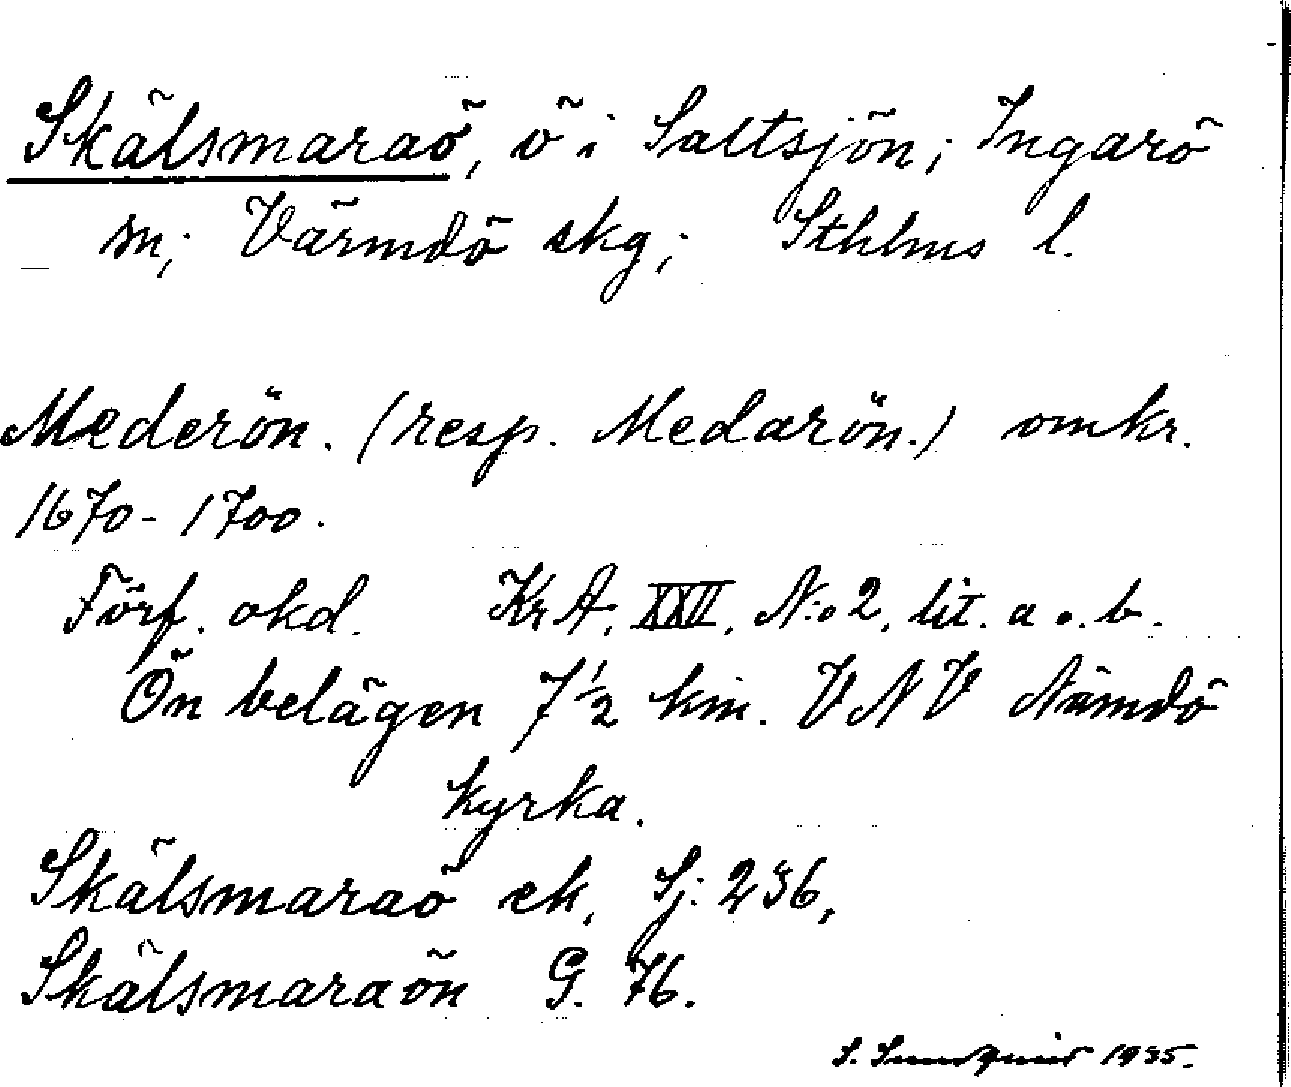 Skälsmaraö, ö i Saltsjön; Ingarö
sn; Värmdö skg; Sthlms l.
Mederön. (resp. Medarön.) omkr.
1670-1700.
Förf. okd. KrA, XXII, N:o 2, lit. a o. b.
Ön belägen 7 1/2 km. VNV Nämdö
kyrka.
Skälsmaraö ek, Sj: 236,
Skälsmaraön G. 76.
S. 1935.